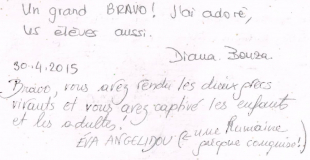 Un grand BRAVO! J'ai adoré,
les élèves aussi.
Diana Bouza
30.4.2015
Bravo, vous avez rendu les dieux grecs
vivants et vous avez captivé les enfants
et les adultes!
EVA ANGELIDOU (= une Roumaine
grecque conquise!)